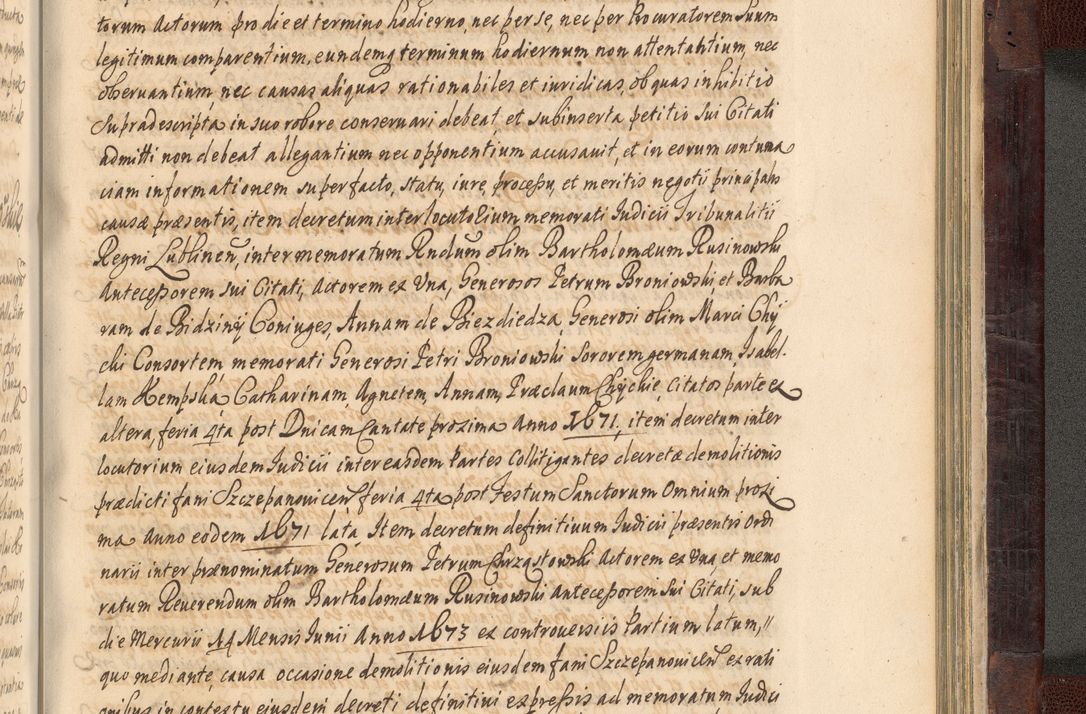 torum Actorum pro die et termino hodierno, nec per se, nec per Procuratorem suum
legitimum comparentium, eundemq terminum hodiernum non attentantium, nec
observantium, nec causas aliquas rationabiles et iuridicas, ob quas inhibitio
supradescripta in suo robore conservari debeat, et subinserta petitio sui Citati
admitti non debeat allegantium nec opponentium accusavit, et in eorum contuma
ciam informationem super facto, statu, iure, processu, et meritis negotii principalis
causæ præsentis, item decretum interlocutorium memorati Iudicii Tribunalitii
Regni Lublinen, inter memoratum Rndum olim Bartholomæum Rusinowski
Antecessorem sui Citati, Actorem ex Vna, Generosos Petrum Broniowski et Barba
ram de Bidziny Coniuges, Annam de Biezdiedza, Generosi olim Marci Chy
cki Consortem memorati Generosi Petri Broniowski sororem germanam, Isabel-
lam Kempska Catharinam, Agnetem, Annam, Præclaum Chyckie, Citatos parte ex
altera, feria 4ta post Dnicam Cantate proxima Anno 1671, item decretum inter
locutorium eiusdem Iudicii inter easdem Partes Collitigantes decretæ demolitionis
prædicti fani Szczepanovicen feria 4ta post Festum Sanctorum Omnium proxi
ma Anno eodem 1671 lata, Item decretum definitivum Iudicii præsentis Ordi
narii inter prænominatum Generosum Petrum Chrząstowski Actorem ex Vna et memo
ratum Reverendum olim Bartholomæum Rusinowski Antecessorem sui Citati, sub
die Mercurii 14 Mensis Iunii Anno 1673 ex controversiis Partium latum,
quo mediante, causa occasione demolitionis eiusdem fani Szczepanovicen ex rati
onibus in contextu eiusdem decreti definitivi expressis ad memoratum Iudici